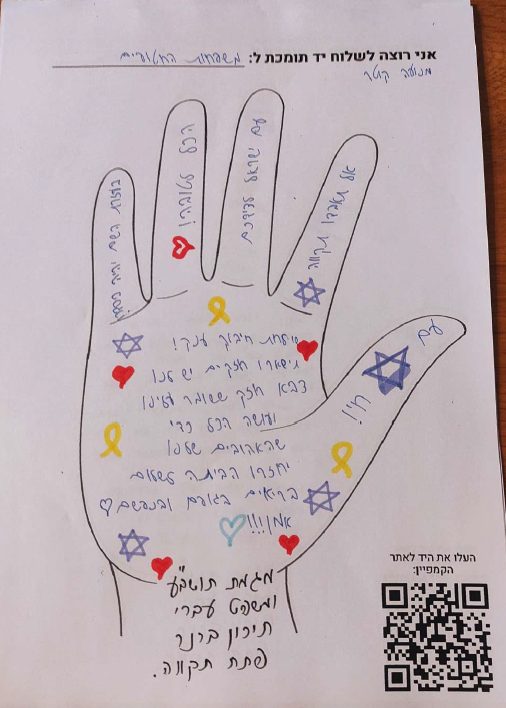 אני רוצה לשלוח יד תומכת ל: משפחות החטופים
מנועה קוטר
בעזרת השם יהיה בסדר
הכל לטובה!
עם ישראל לצידכם
אל תאבדו תקווה
עם
חי!
שולחת חיבוק ענק!
תישארו חזקים יש לנו
צבא חזק ששומר עלינו
ועושה הכל כדי
שהאהובים שלנו
יחזרו הביתה לשלום
בריאים בגופם ובנפשם
אמן!!!
מגמת תושב"ע
ומשפט עברי
תיכון ברנר
פתח תקווה.
העלו את היד לאתר
הקמפיין: